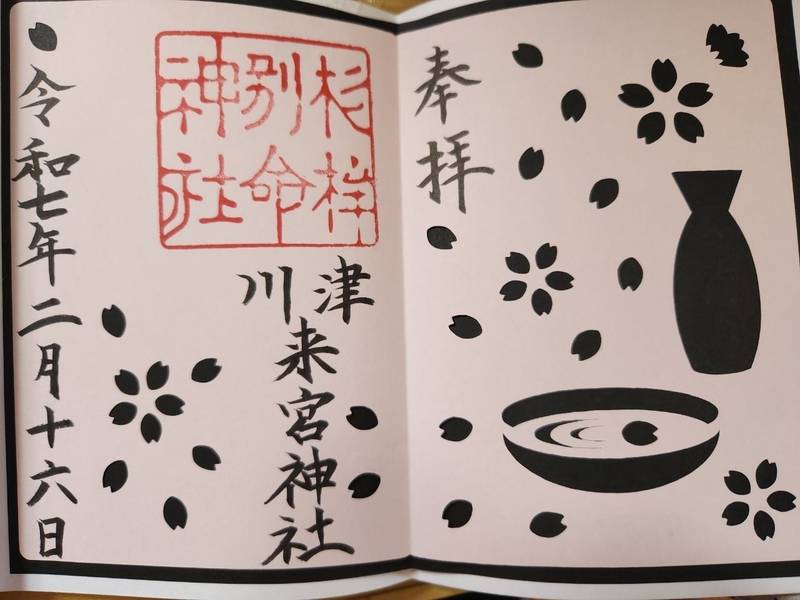 奉拝
杉桙
別命
神社
川津来宮神社
令和七年二月十六日